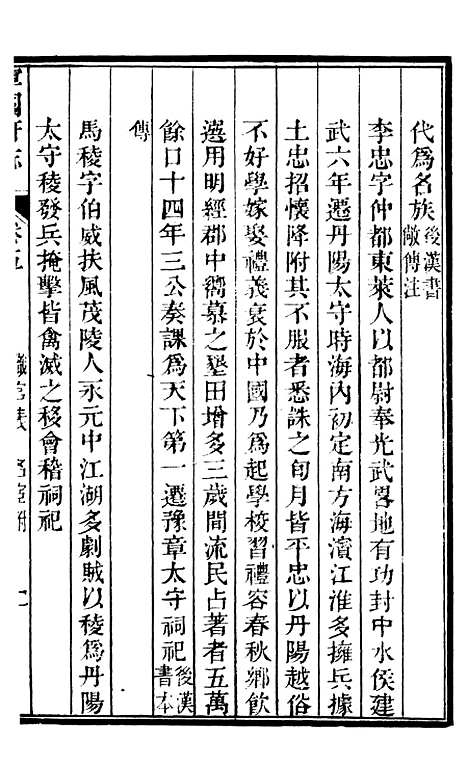 代爲名族後漢書
敞傳注
李忠字仲都東萊人以都尉奉光武畧地有功封中水侯建
武六年遷丹陽太守時海内初定南方海濱江淮多擁兵據
土忠招懷降附其不服者悉誅之旬月皆平忠以丹陽越俗
不好學嫁娶禮義衰於中國乃爲起學校習禮容春秋鄉飲
選用明經郡中嚮慕之墾田增多三歲間流民占著者五萬
餘口十四年三公奏課爲天下第一遷豫章太守祠祀後漢
書本
傳
馬稜字伯威扶風茂陵人永元中江湖多劇賊以稜爲丹陽
太守稜發兵掩擊皆禽滅之移會稽祠祀
寧國府志
卷五
職官表
名宦附